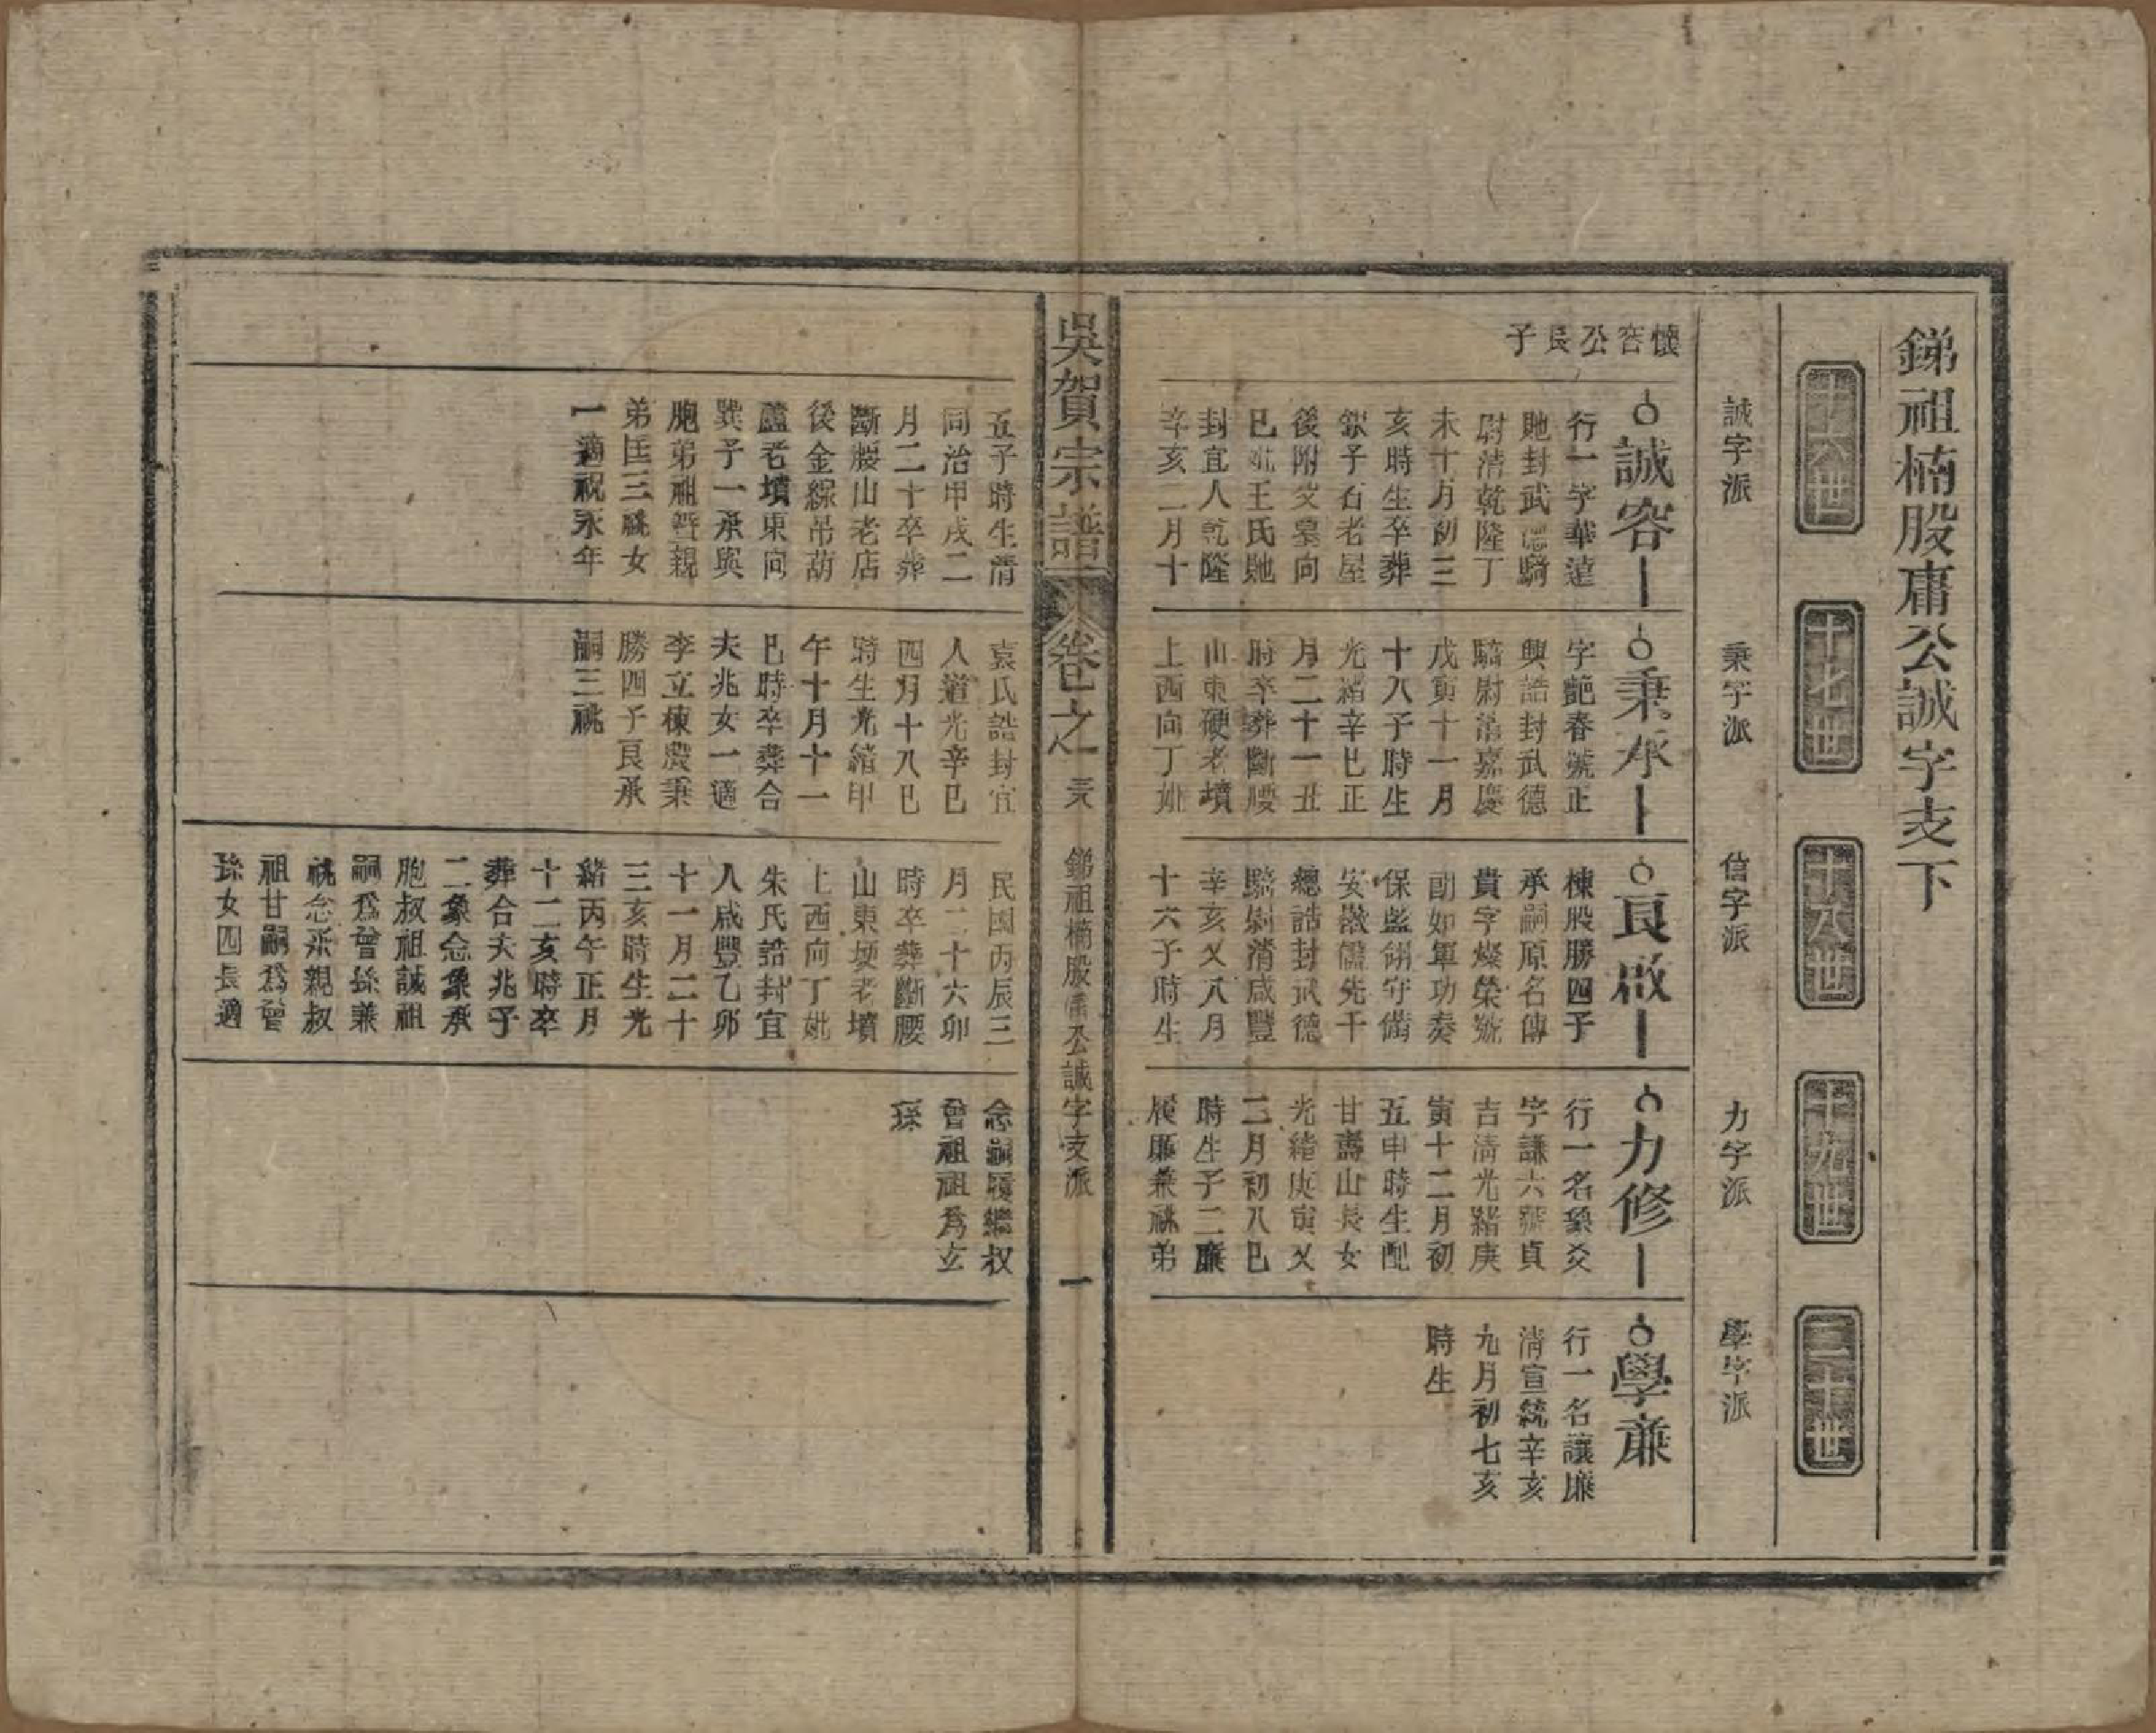 銻祖楠股庸公誠字支下
十六世
十七世
十八世
十九世
二十世
誠字派
秉字派
信字派
力字派
學字派
懷窖公長子
誠容
行一字華遠
貤封武德騎
尉清乾隆丁
未十月初三
亥時生卒葬
銀子石老屋
後附父墓向
巳妣王氏貤
封宜人乾隆
辛亥二月十
五子時生清
同治甲戌二
月二十卒葬
斷腰山老店
後金線吊葫
蘆老墳東向
巽子一承與
胞弟祖暨親
弟匡三祧女
一適祝永年
秉承
字艷春號正
興誥封武德
騎尉清嘉慶
戊寅十一月
十八子時生
光緒辛巳正
月二十一丑
時卒葬斷腰
山東硬老墳
上西向丁妣
袁氏誥封宜
人道光辛巳
四月十八巳
時生光緒甲
午十月十一
巳時卒葬合
夫兆女一適
李立棟慶秉
勝四子良承
嗣三祧
良啟
棟股勝四子
承嗣原名傳
貴字燦榮號
朗如軍功奏
保藍翎守備
安徽儘先千
總誥封武德
騎尉清咸豐
辛亥又八月
十六子時生
民國丙辰三
月二十六卯
時卒葬斷腰
山東埂老墳
上西向丁妣
朱氏誥封宜
人咸豐乙卯
十一月二十
三亥時生光
緒丙午正月
十二亥時卒
葬合夫兆子
二象念象承
胞叔祖誠祖
嗣爲曾孫兼
祧念承親叔
祖甘嗣爲曾
孫女四長適
力修
行一名象爻
字謙六號貞
吉清光緒庚
寅十二月初
五申時生配
甘壽山長女
光緒庚寅又
二月初八巳
時生子二廉
履廉兼祧弟
念嗣履繼叔
曾祖祖爲玄
孫
學廉
行一名讓廉
清宣統辛亥
九月初七亥
時生
吳賀宗譜
卷之
銻祖楠股庸公誠字支派
一